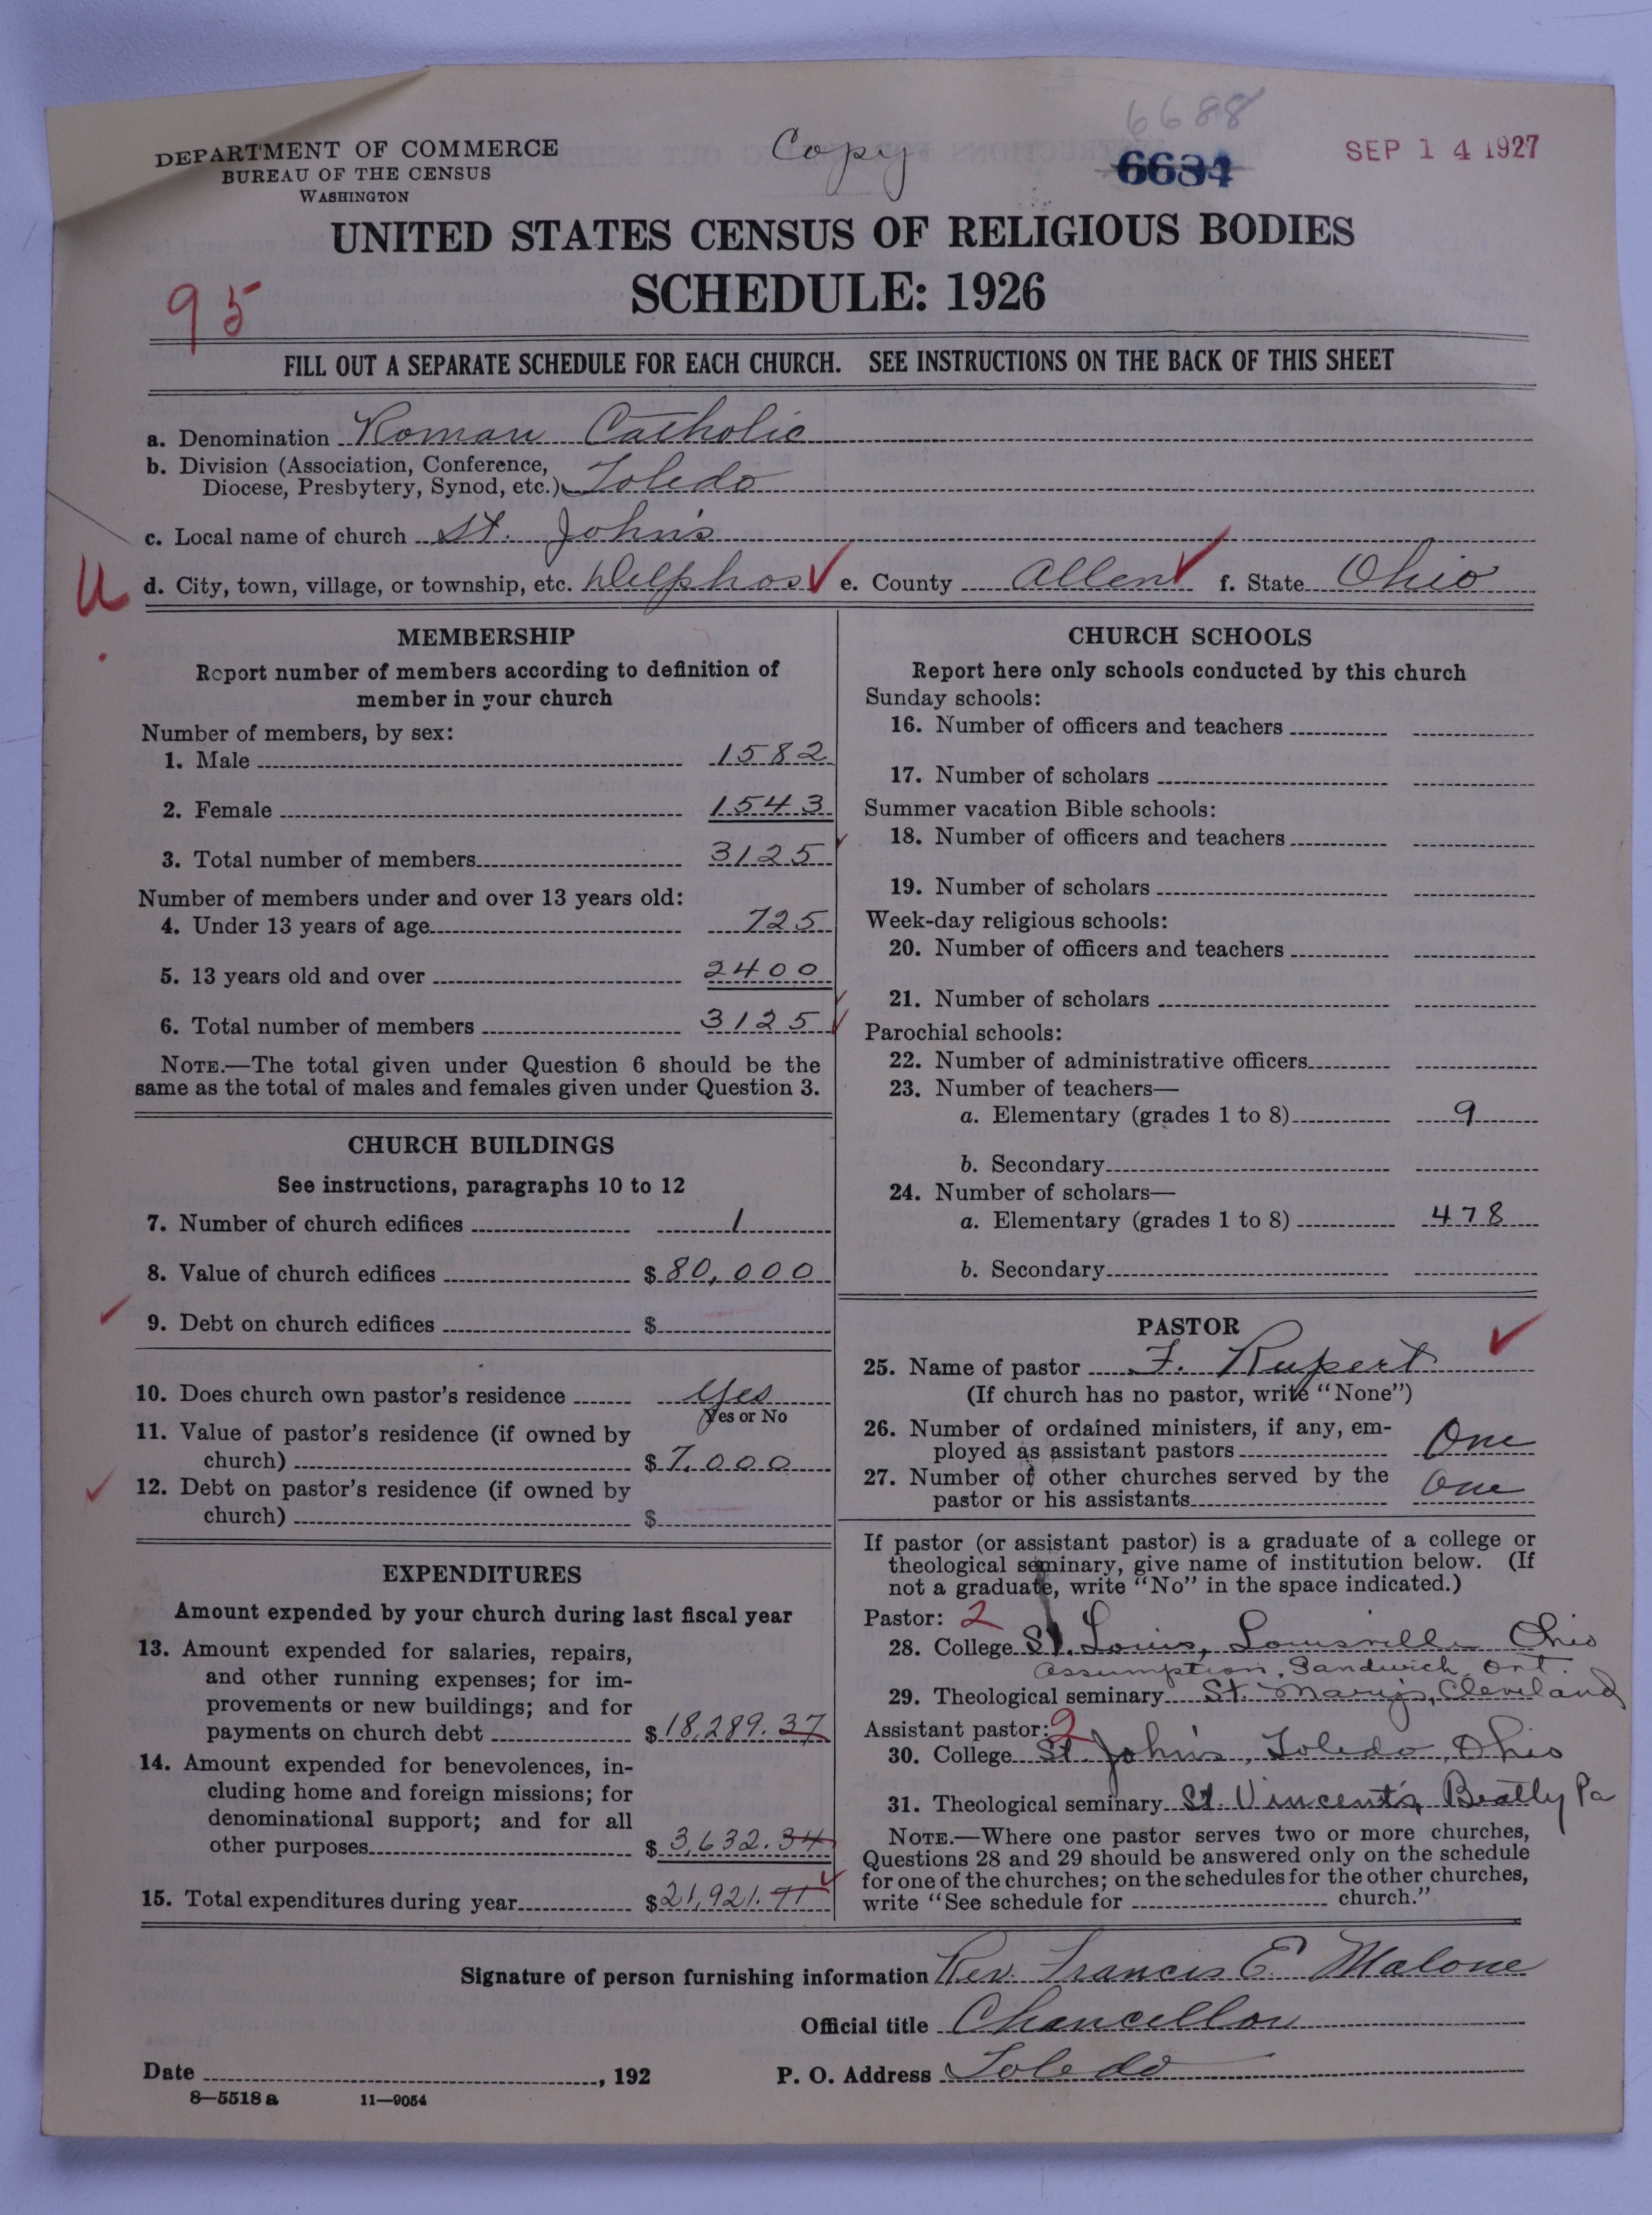 6688
DEPARTMENT OF COMMERCE
BUREAU OF THE CENSUS
WASHINGTON
Copy
6634
SEP 14 1927
UNITED STATES CENSUS OF RELIGIOUS BODIES
SCHEDULE: 1926
95
FILL OUT A SEPARATE SCHEDULE FOR EACH CHURCH. SEE INSTRUCTIONS ON THE BACK OF THIS SHEET
a. Denomination Roman Catholic
b. Division (Association, Conference,
Diocese, Presbytery, Synod, etc.) Toledo
c. Local name of church St. John's
U d. City, town, village, or township, etc. Delphos e. County Allen f. State Ohio
MEMBERSHIP
Report number of members according to definition of
member in your church
Number of members, by sex:
1. Male 1582
2. Female 1543
3. Total number of members 3125
Number of members under and over 13 years old:
4. Under 13 years of age 725
5. 13 years old and over 2400
6. Total number of members 3125
NOTE.—The total given under Question 6 should be the
same as the total of males and females given under Question 3.
CHURCH BUILDINGS
See instructions, paragraphs 10 to 12
7. Number of church edifices 1
8. Value of church edifices $ 80,000
9. Debt on church edifices $
10. Does church own pastor's residence Yes
Yes or No
11. Value of pastor's residence (if owned by
church) $ 7,000
12. Debt on pastor's residence (if owned by
church) $
EXPENDITURES
Amount expended by your church during last fiscal year
13. Amount expended for salaries, repairs,
and other running expenses; for im-
provements or new buildings; and for
payments on church debt $ 18,289.37
14. Amount expended for benevolences, in-
cluding home and foreign missions; for
denominational support; and for all
other purposes $ 3,632.34
15. Total expenditures during year $ 21,921.71
CHURCH SCHOOLS
Report here only schools conducted by this church
Sunday schools:
16. Number of officers and teachers
17. Number of scholars
Summer vacation Bible schools:
18. Number of officers and teachers
19. Number of scholars
Week-day religious schools:
20. Number of officers and teachers
21. Number of scholars
Parochial schools:
22. Number of administrative officers
23. Number of teachers—
a. Elementary (grades 1 to 8) 9
b. Secondary
24. Number of scholars—
a. Elementary (grades 1 to 8) 478
b. Secondary
PASTOR
25. Name of pastor F. Rupert
(If church has no pastor, write "None")
26. Number of ordained ministers, if any, em-
ployed as assistant pastors One
27. Number of other churches served by the
pastor or his assistants One
If pastor (or assistant pastor) is a graduate of a college or
theological seminary, give name of institution below. (If
not a graduate, write "No" in the space indicated.)
Pastor: 2
28. College St. Louis, Louisville Ohio
Assumption, Sandwich, Ont.
29. Theological seminary St. Mary's, Cleveland
Assistant pastor: 2
30. College St. John's, Toledo, Ohio
31. Theological seminary St. Vincent's, Beatty Pa
NOTE.—Where one pastor serves two or more churches,
Questions 28 and 29 should be answered only on the schedule
for one of the churches; on the schedules for the other churches,
write "See schedule for church."
Signature of person furnishing information Rev. Francis E. Malone
Official title Chancellor
Date , 192 P. O. Address Toledo
8—5518 a 11—9054